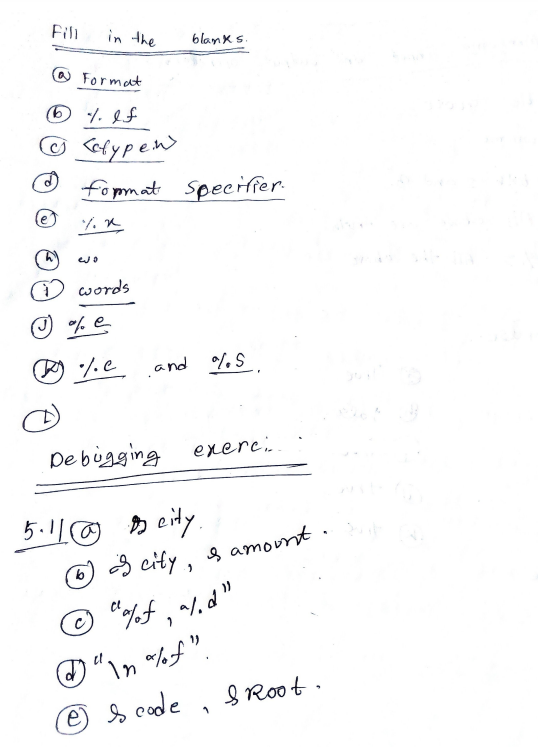 Fill in the blanks.
(a) Format
(b) %lf
(c) <ctype.h>
(d) format specifier.
(e) %x
(h)
(i) words
(j) %e
(k) %c and %s.
(l)
Debugging exerci
5.11 (a) & city.
(b) & city, & amount.
(c) "%f, %d"
(d) "\n %f".
(e) & code, & Root.